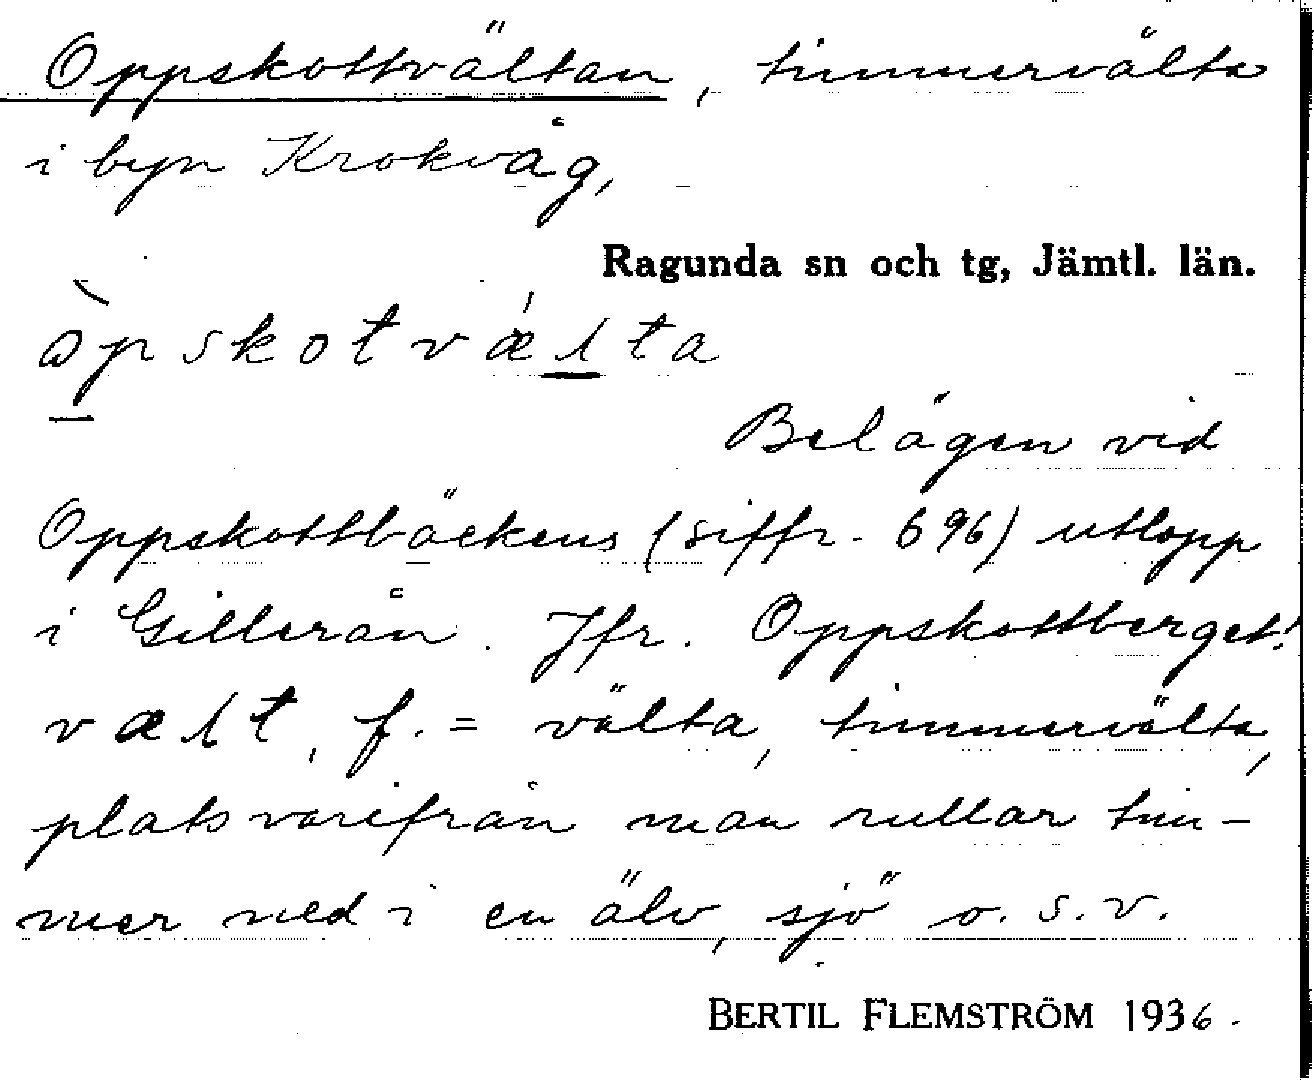 Oppskottvältan, timmervälta
i byn Krokvåg,
Ragunda sn och tg, Jämtl. län.
òpskotvæ̍lta
Belägen vid
Oppskottbäckens (siffr. 696) utlopp
i Gillerån. Jfr. Oppskottberget!
vælt, f. = välta, timmervälta,
plats varifrån man rullar tim-
mer ned i en älv, sjö o. s. v.
BERTIL FLEMSTRÖM 1936.